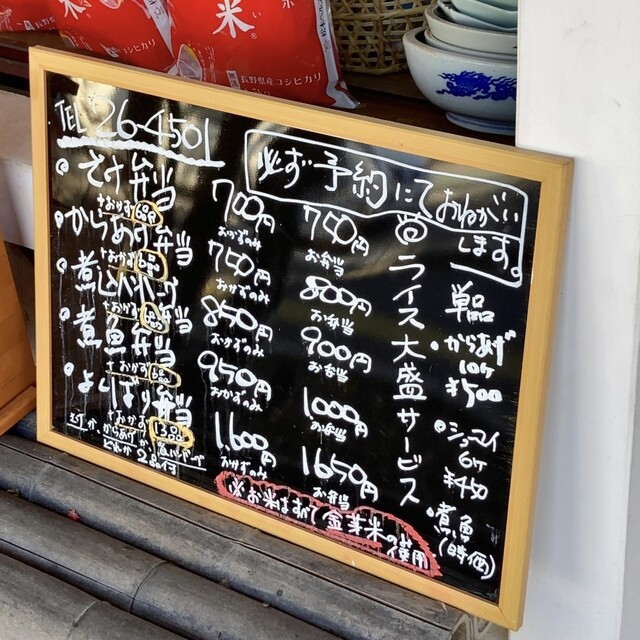 米
長野県産コシヒカリ
TEL 26-4501
必ず予約にておねがい
します。
さけ弁当 700円 750円
+おかず6品 おかずのみ お弁当
からあげ弁当 750円 800円
+おかず6品 おかずのみ お弁当
煮込ハンバーグ 850円 900円
+おかず6品 おかずのみ お弁当
煮魚弁当 950円 1000円
+おかず6品 おかずのみ お弁当
よくばり弁当 1.600円 1650円
+おかず13品 おかずのみ お弁当
さけか、からあげか、煮込ハンバーグ
2品付
ライス大盛サービス
単品
・からあげ
10ヶ
¥500
・シューマイ
6ヶ
¥450
・煮魚
(時価)
※お米はすべて金芽米のみ
使用